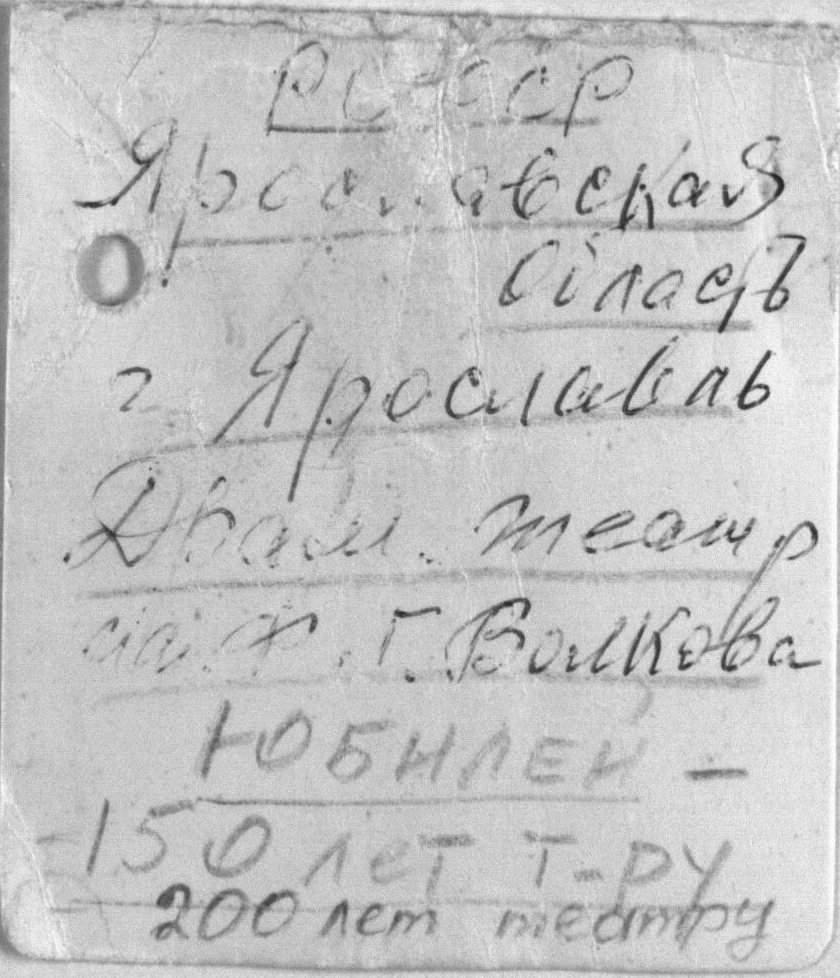 РСФСР
Ярославская
область
г Ярославль
Драм. театр
им. Ф. Г. Волкова
ЮБИЛЕЙ –
150 лет т-ру
200 лет театру